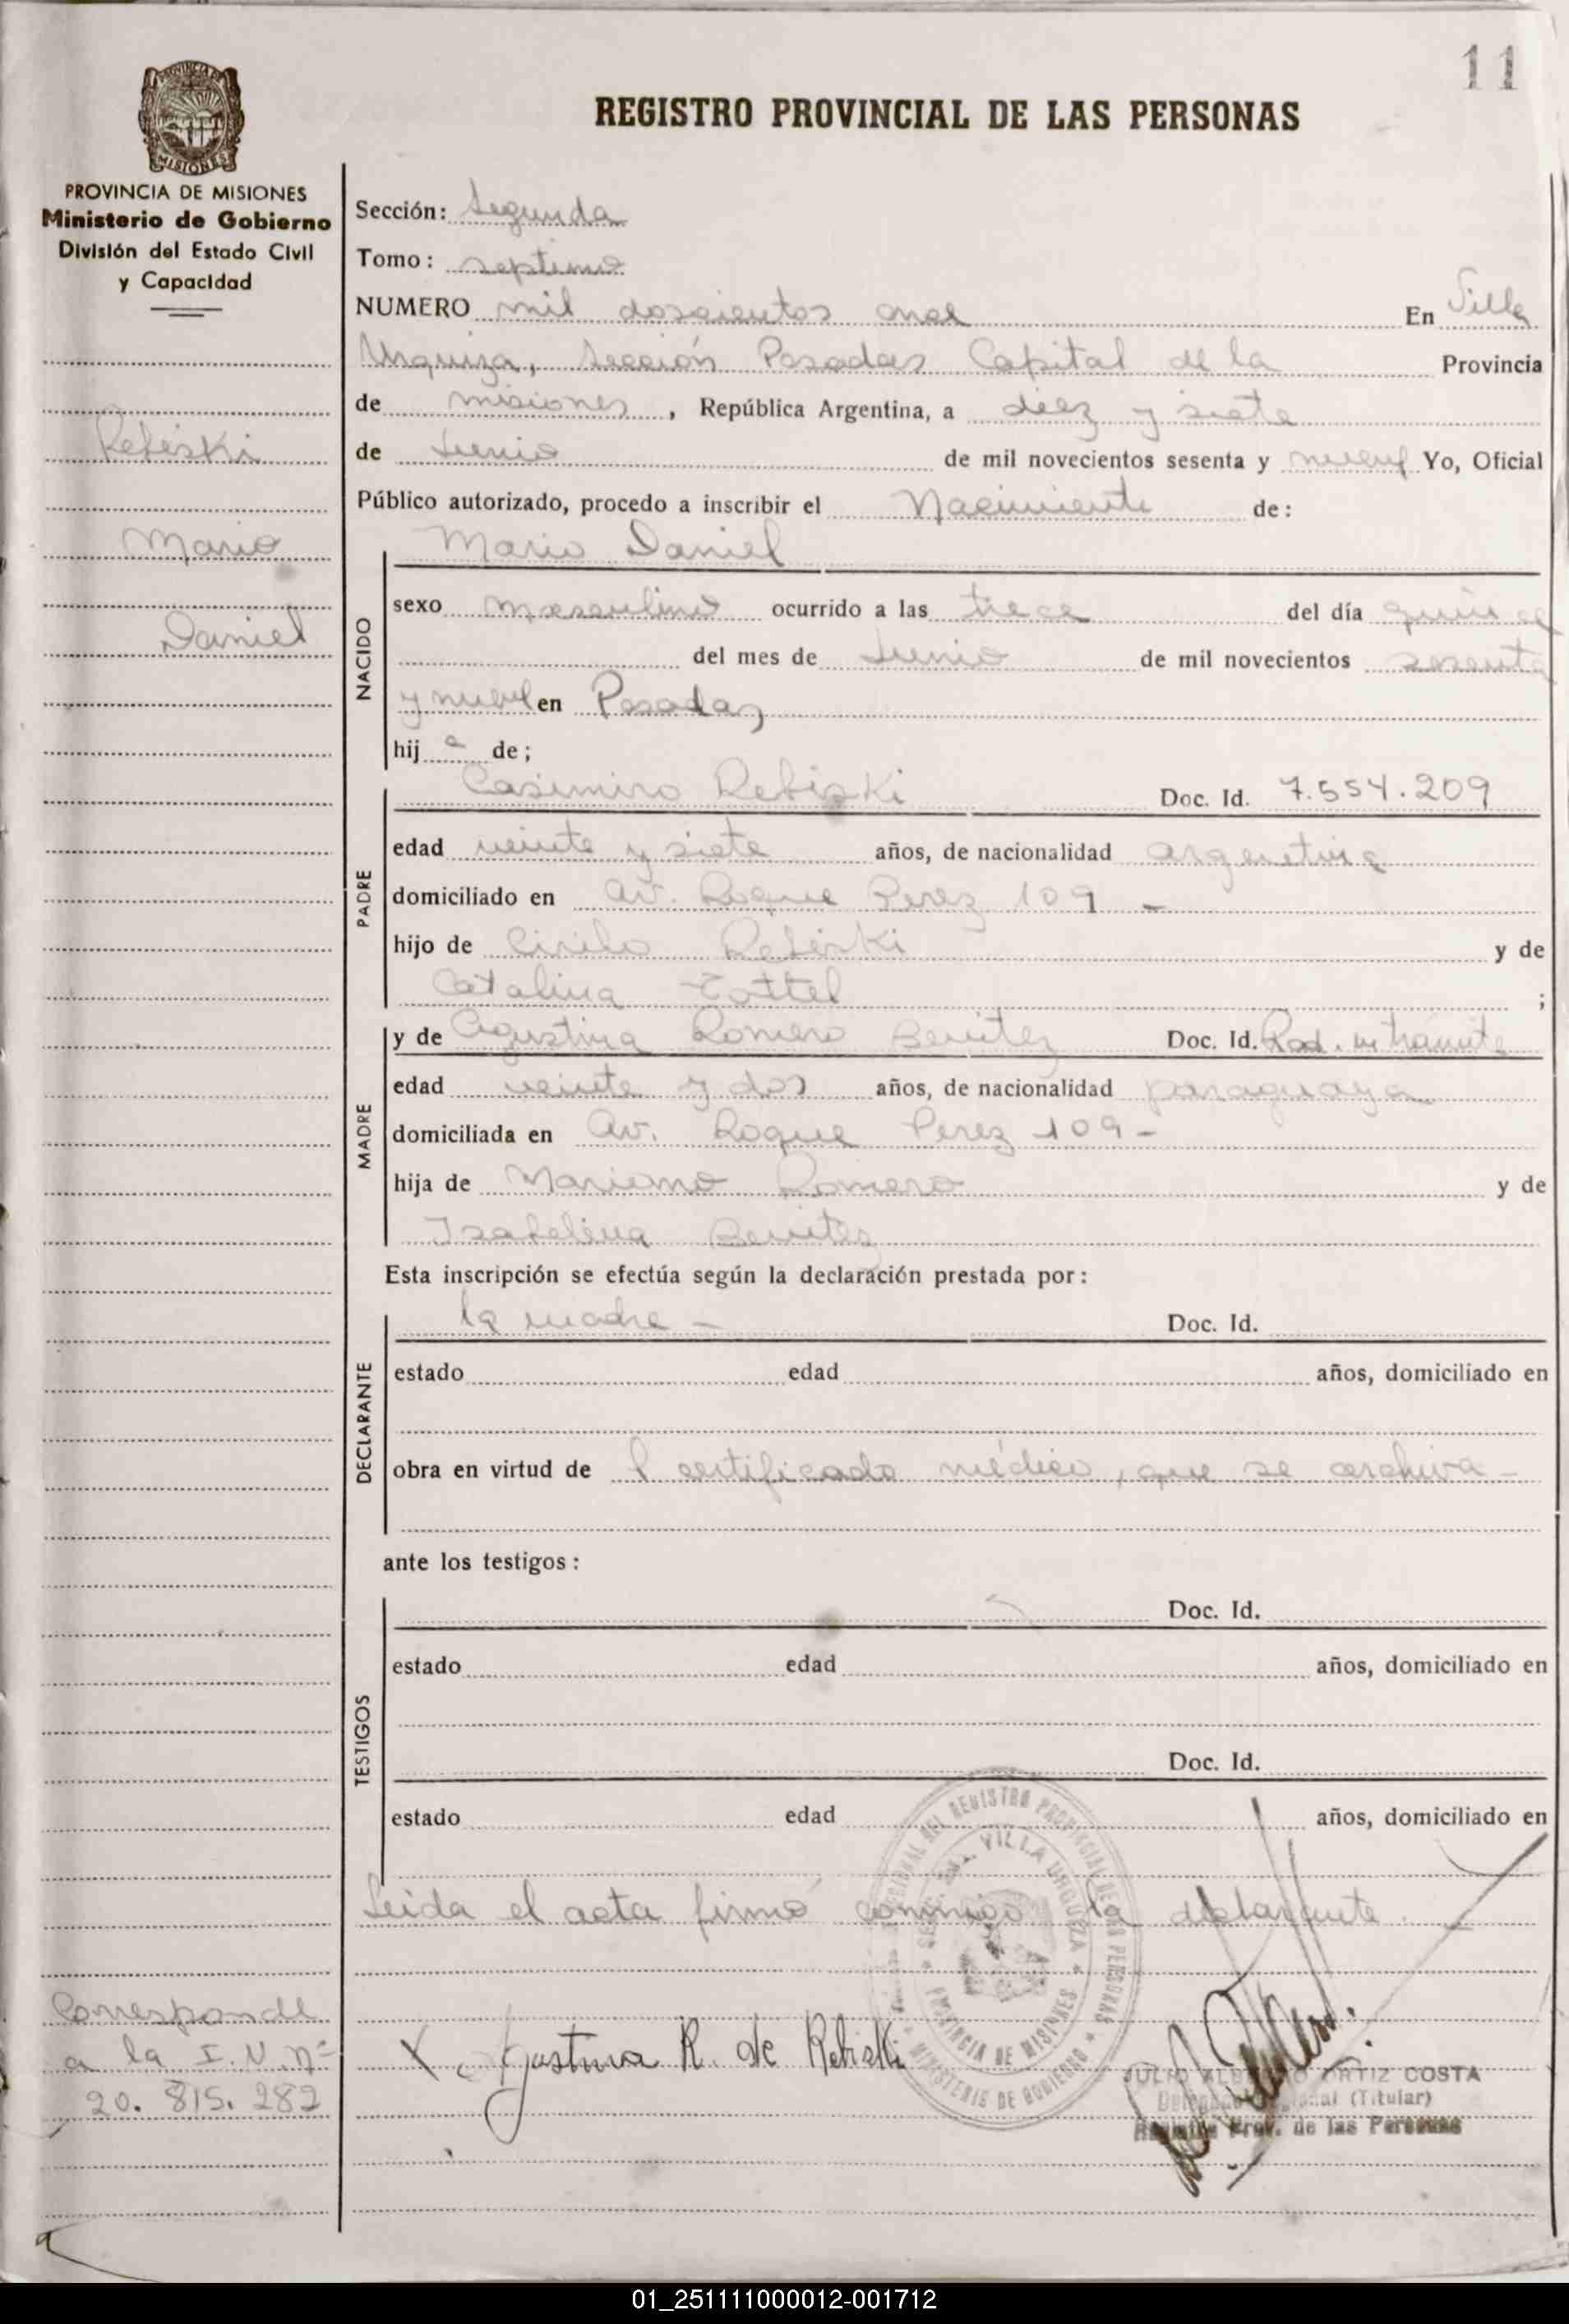 11
REGISTRO PROVINCIAL DE LAS PERSONAS
PROVINCIA DE MISIONES
Ministerio de Gobierno
División del Estado Civil
y Capacidad
Rebiski
Mario
Daniel
Sección: Segunda
Tomo: septimo
NUMERO mil doscientos once En Villa
Urquiza, Sección Posadas Capital de la Provincia
de misiones, República Argentina, a diez y siete
de Junio de mil novecientos sesenta y nueve Yo, Oficial
Público autorizado, procedo a inscribir el Nacimiento de:
NACIDO
Mario Daniel
sexo masculino ocurrido a las trece del día quince
del mes de Junio de mil novecientos sesenta
y nueve en Posadas
hij o de;
PADRE
Casimiro Rebiski Doc. Id. 7.554.209
edad veinte y siete años, de nacionalidad argentina
domiciliado en av. Roque Perez 109 -
hijo de Cirilo Rebiski y de
Catalina Tottel ;
MADRE
y de Agustina Romero Benitez Doc. Id. Rad. en tramite
edad veinte y dos años, de nacionalidad paraguaya
domiciliada en av. Roque Perez 109 -
hija de Mariano Romero y de
Isabelina Benitez
Esta inscripción se efectúa según la declaración prestada por:
DECLARANTE
la madre - Doc. Id.
estado edad años, domiciliado en
obra en virtud de l certificado médico, que se archiva -
ante los testigos:
TESTIGOS
Doc. Id.
estado edad años, domiciliado en
Doc. Id.
estado edad años, domiciliado en
Leida el acta firmó conmigo la declarante.
VILLA URQUIZA
PROVINCIA DE MISIONES
MINISTERIO DE GOBIERNO
Corresponde
a la I. N. nº
20. 815. 282
X Agustina R. de Rebiski
JULIO ALBERTO ORTIZ COSTA
(Titular)
Registro Prov. de las Personas
01_251111000012-001712